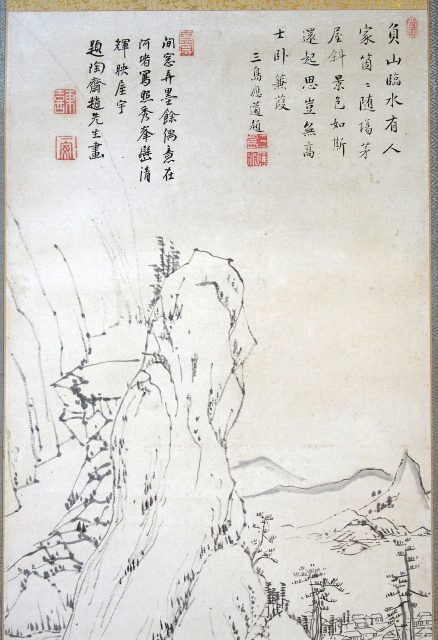 負山臨水有人
家箇〻随場茅
屋斜景色如斯
還起思豈無高
士卧蒹葭
三島應道題
間窓弄墨餘偶意在
阿堵寫照秀峯巒清
輝映屋宇
題陶齋趙先生畫